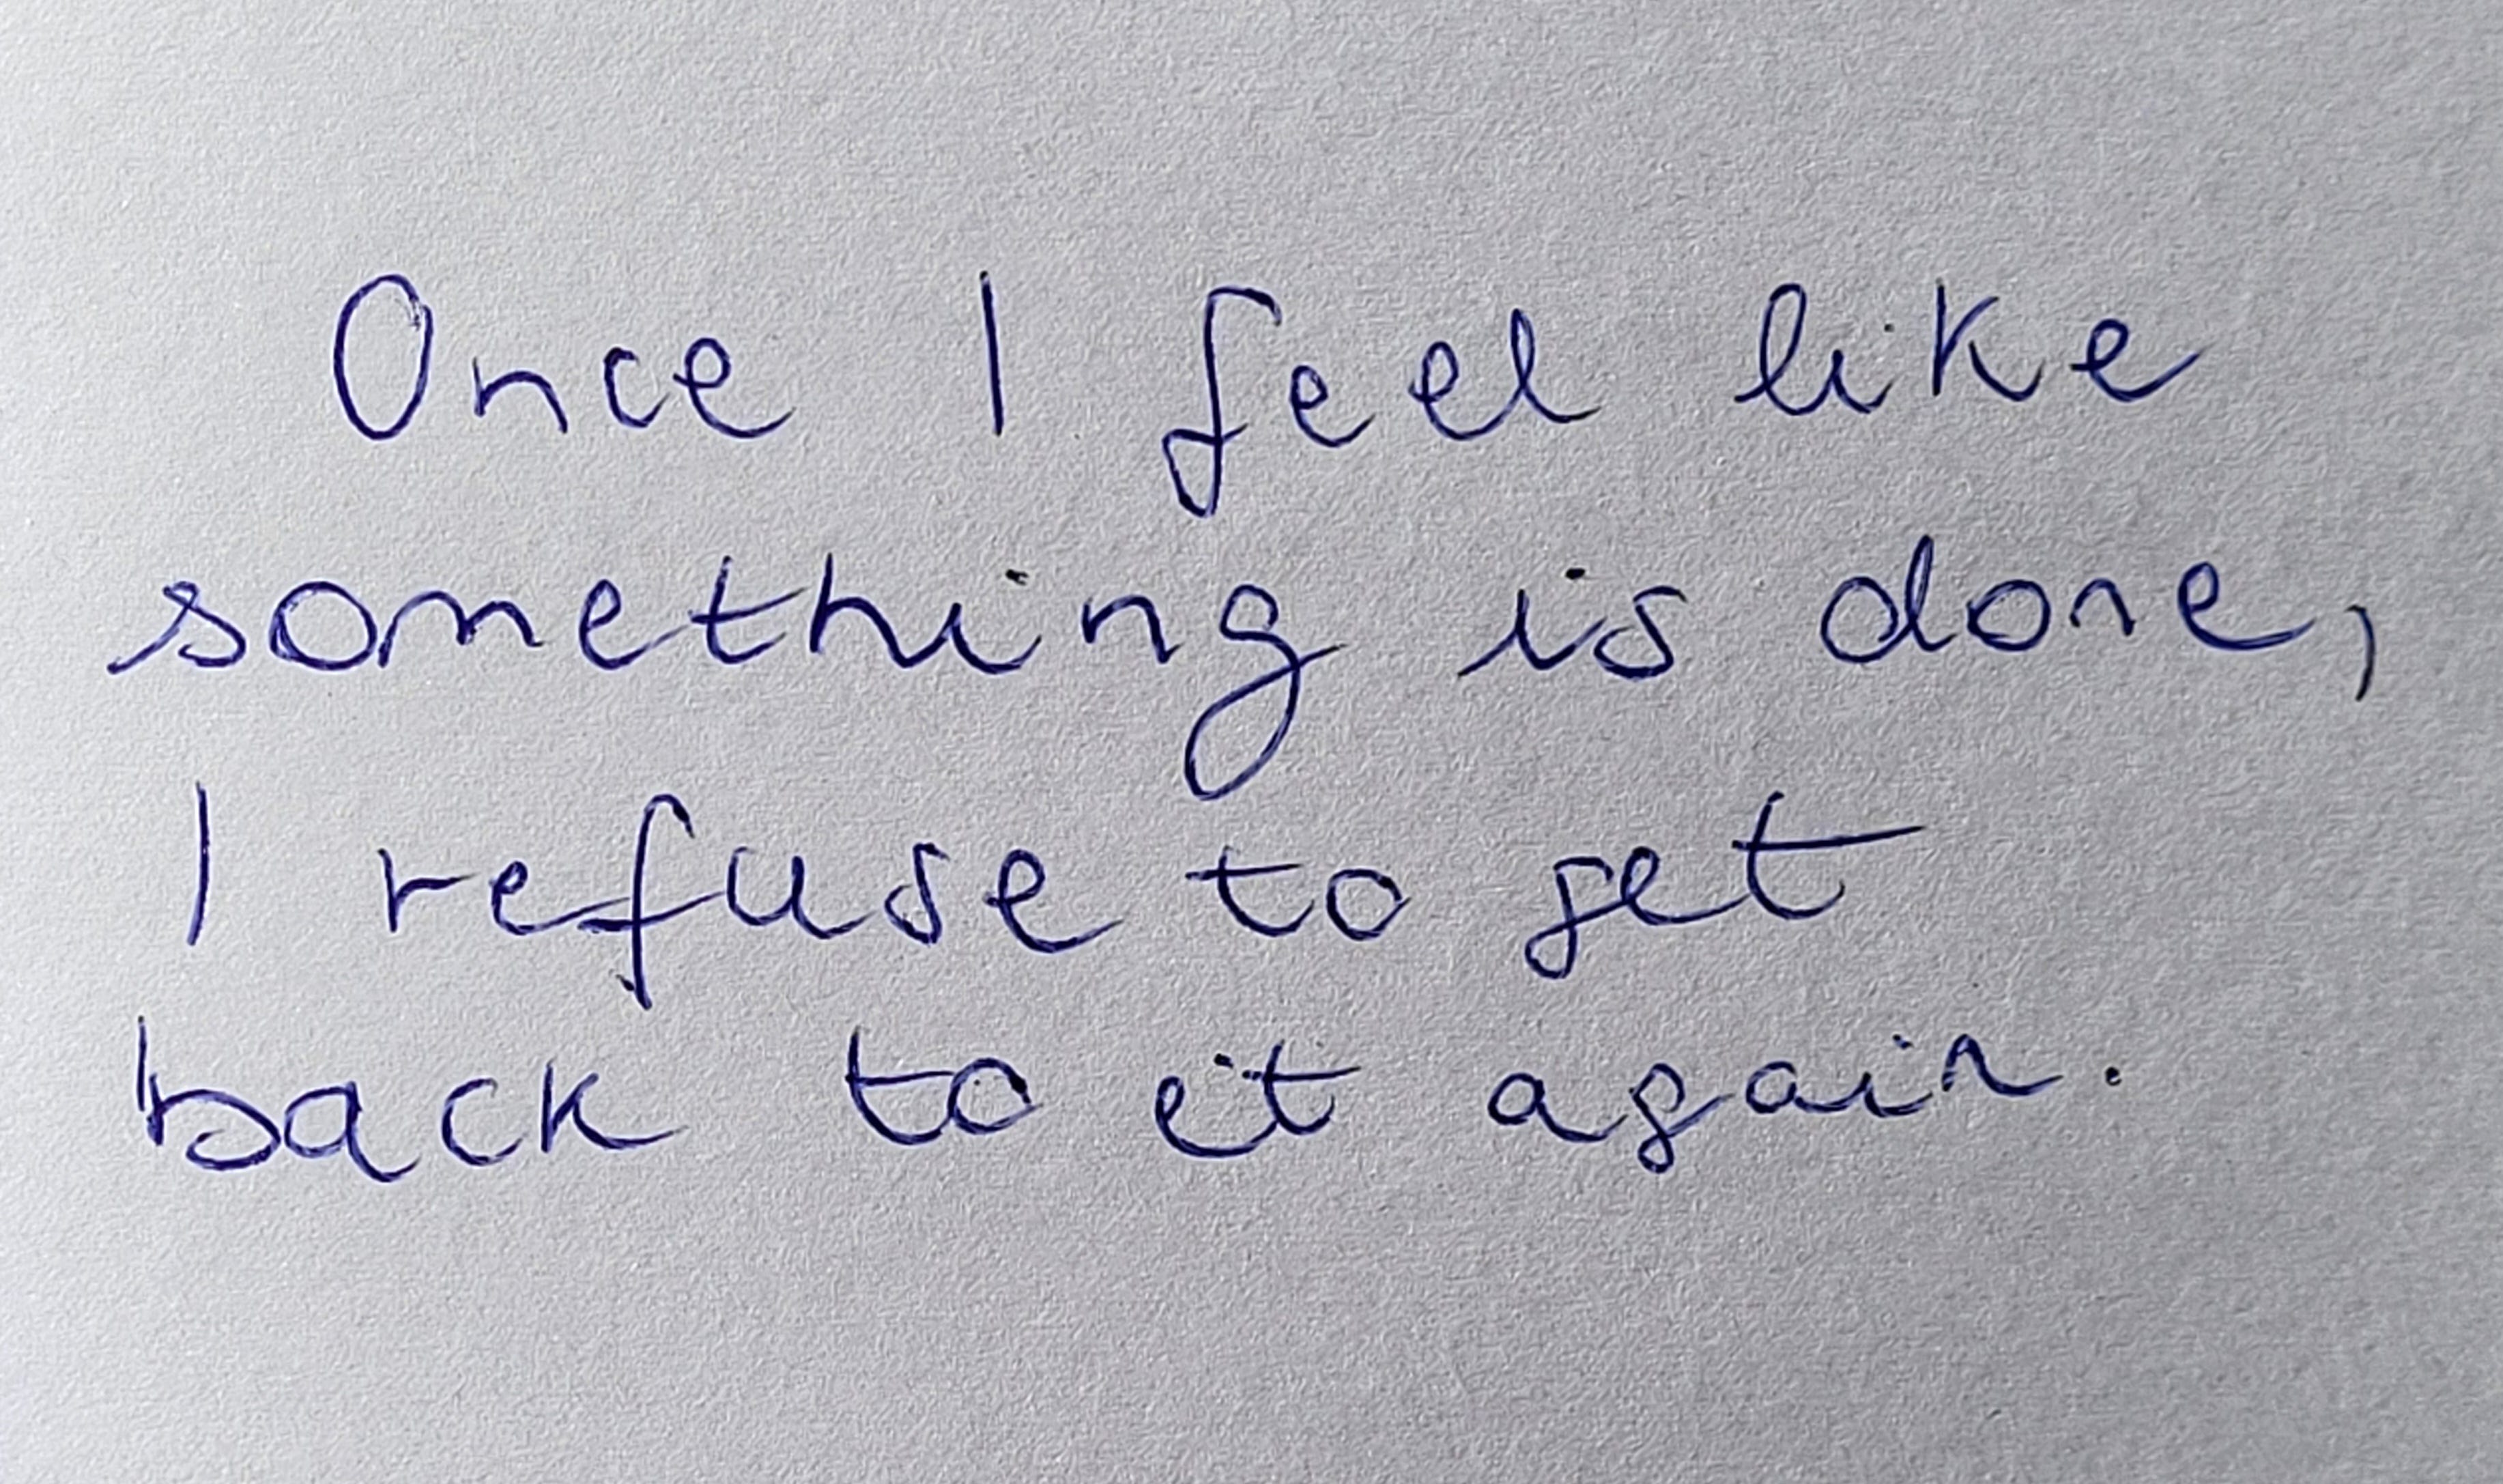 Once I feel like
something is done,
I refuse to get
back to it again.